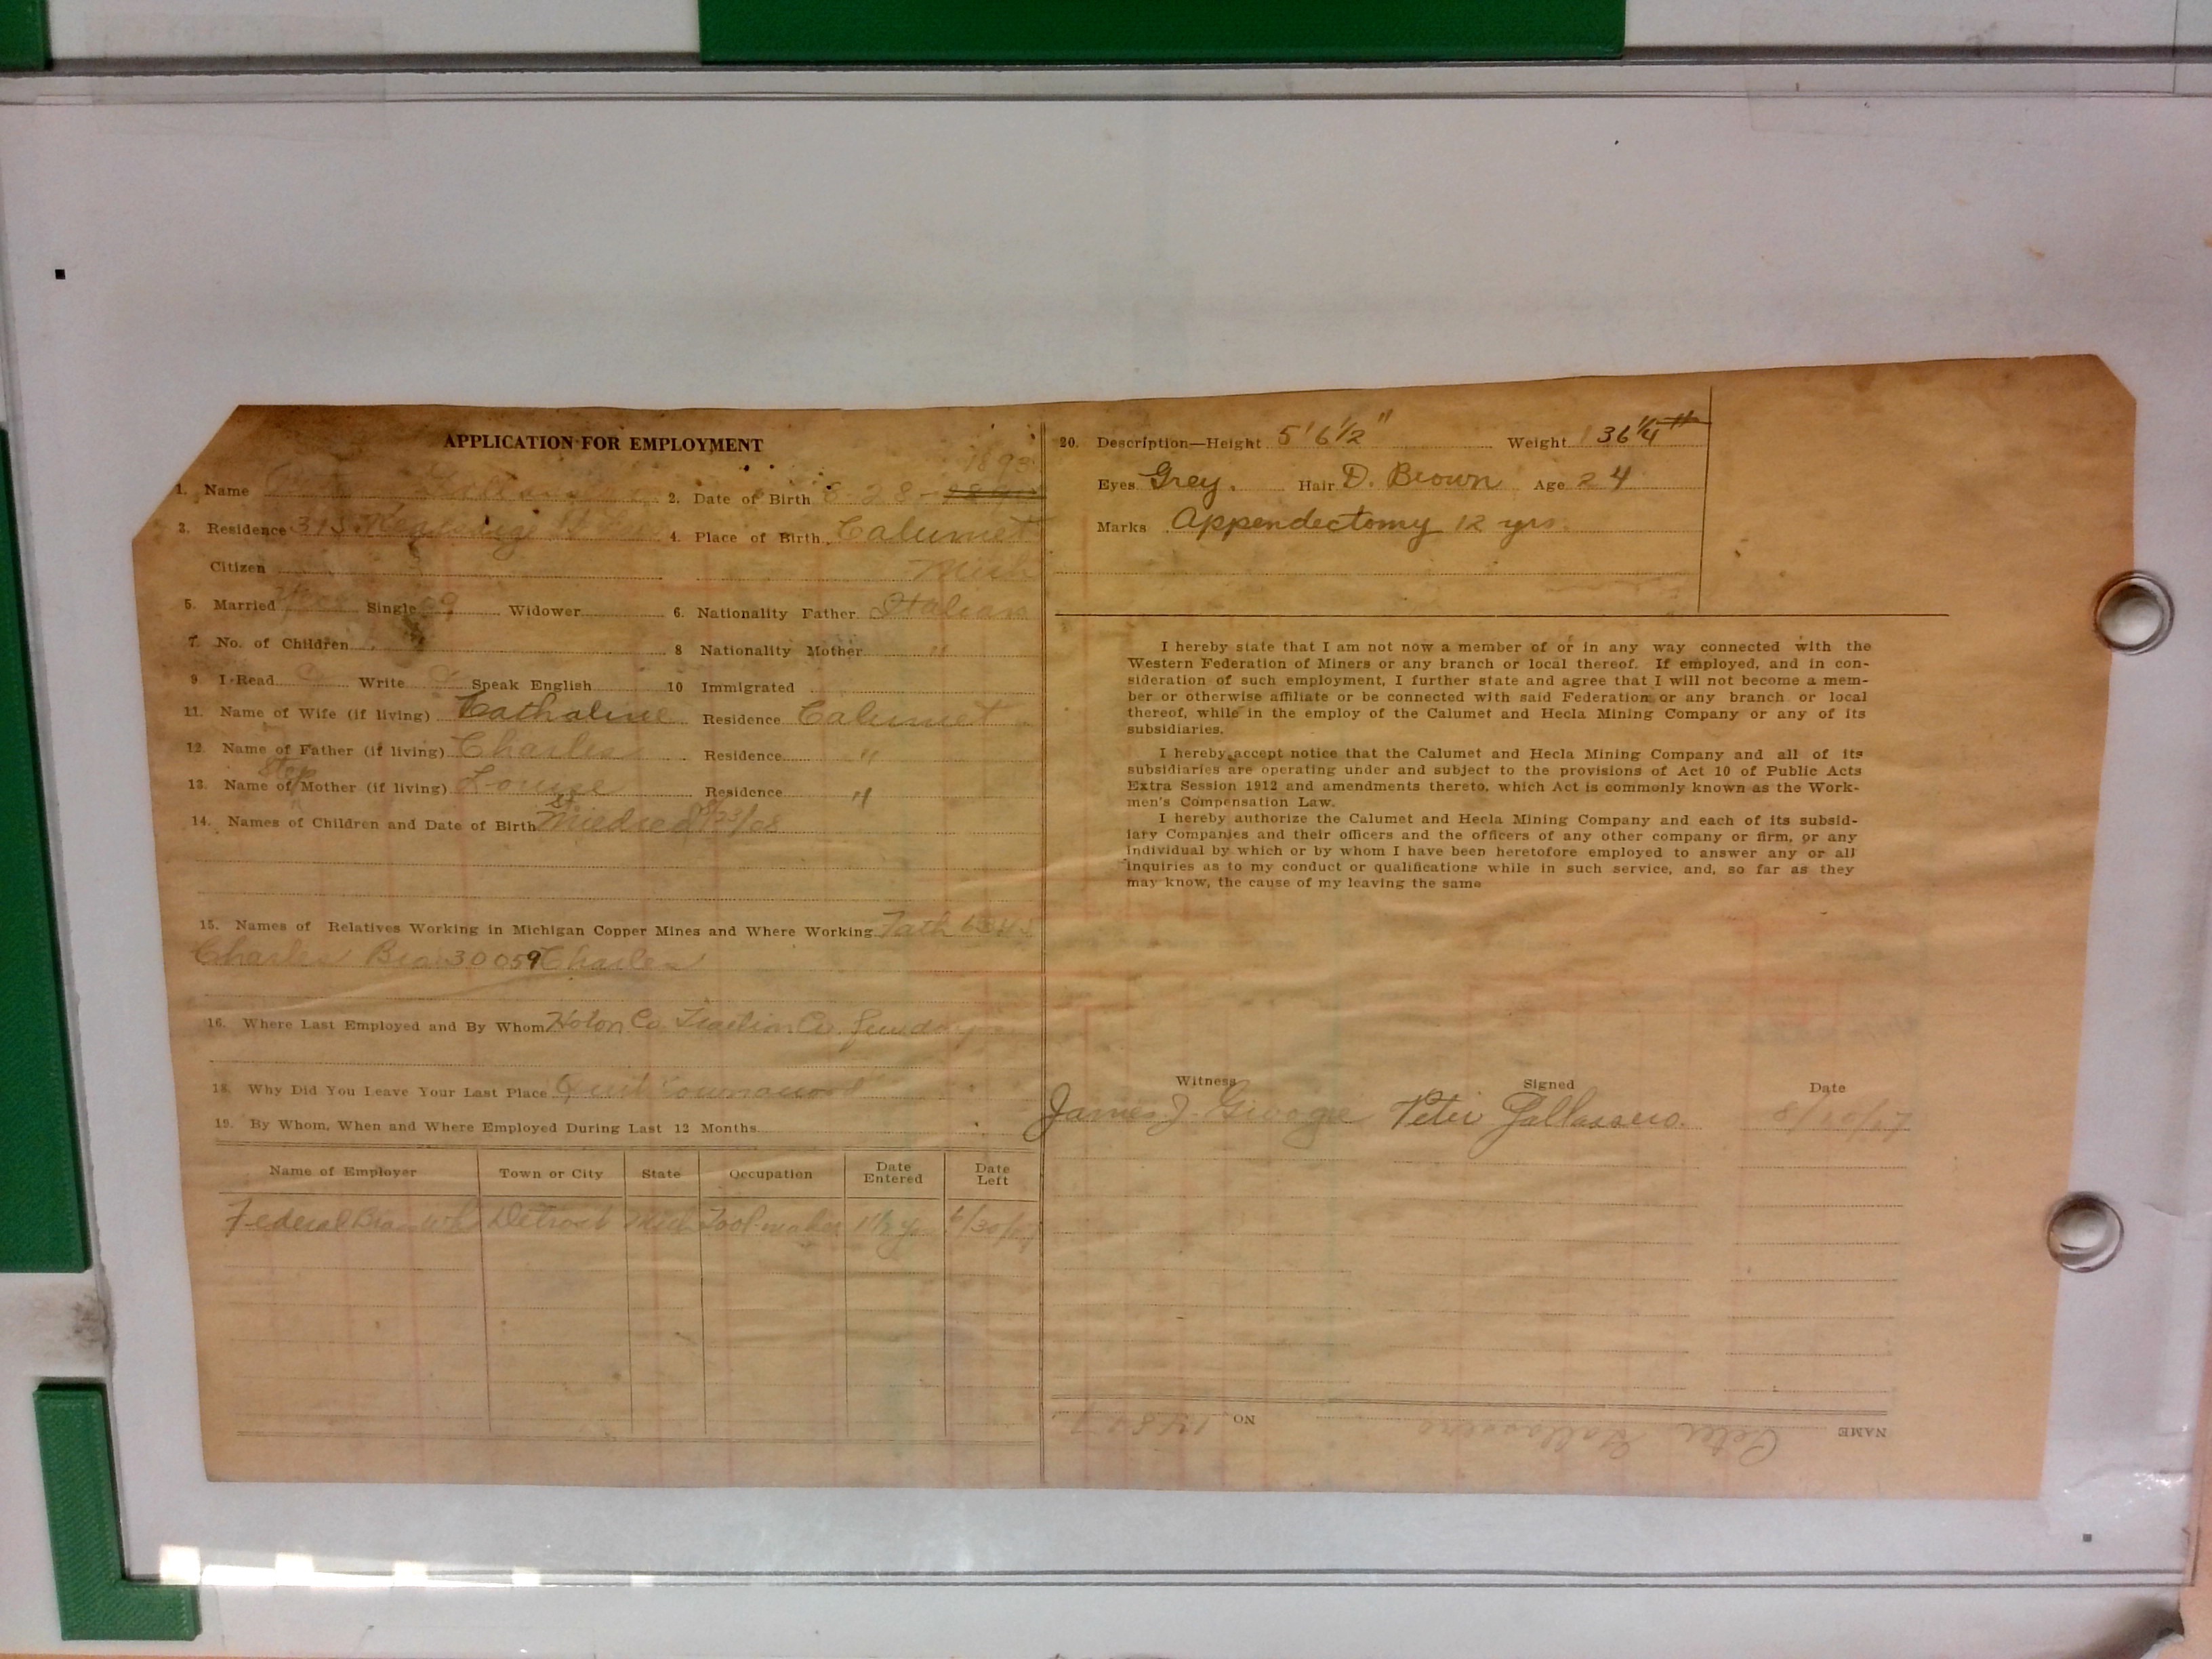 APPLICATION FOR EMPLOYMENT
1893
1. Name 2. Date of Birth 6-28-
3. Residence 4. Place of Birth Calumet
Citizen Mich
5. Married Single Widower 6. Nationality Father Italian
7. No. of Children 8 Nationality Mother "
9 I Read Write Speak English 10 Immigrated
11. Name of Wife (if living) Cathaline Residence Calumet
12. Name of Father (if living) Charles Residence "
Step
13. Name of Mother (if living) Louise Residence "
14. Names of Children and Date of Birth
15. Names of Relatives Working in Michigan Copper Mines and Where Working Fath
Charles Bro 30059 Charles
16. Where Last Employed and By Whom Hoton Co Traction Co. few day
18. Why Did You Leave Your Last Place Quit own accord
19. By Whom, When and Where Employed During Last 12 Months
Name of Employer Town or City State Occupation Date Entered Date Left
Federal Brass Wks Detroit Mich Tool-maker 1 1/2 yr 6/30/17
20. Description—Height 5' 6 1/2" Weight 136 1/4
Eyes Grey. Hair D. Brown Age 24
Marks Appendectomy 12 yrs.
I hereby state that I am not now a member of or in any way connected with the
Western Federation of Miners or any branch or local thereof. If employed, and in con-
sideration of such employment, I further state and agree that I will not become a mem-
ber or otherwise affiliate or be connected with said Federation or any branch or local
thereof, while in the employ of the Calumet and Hecla Mining Company or any of its
subsidiaries.
I hereby accept notice that the Calumet and Hecla Mining Company and all of its
subsidiaries are operating under and subject to the provisions of Act 10 of Public Acts
Extra Session 1912 and amendments thereto, which Act is commonly known as the Work-
men's Compensation Law.
I hereby authorize the Calumet and Hecla Mining Company and each of its subsid-
iary Companies and their officers and the officers of any other company or firm, or any
individual by which or by whom I have been heretofore employed to answer any or all
inquiries as to my conduct or qualifications while in such service, and, so far as they
may know, the cause of my leaving the same
Witness Signed Date
James J. Peter Gallassero. 8/10/17
NAME Peter Gallassero NO.